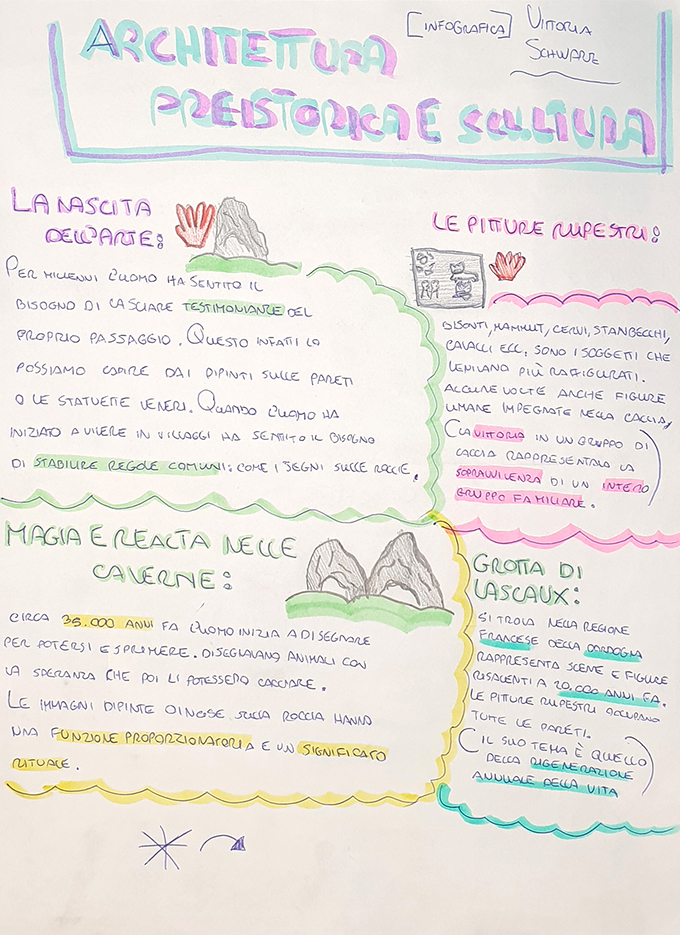 [INFOGRAFICA]
VITTORIA
SCHWARZ
ARCHITETTURA
PREISTORICA E SCULTURA
LA NASCITA
DELL'ARTE:
PER MILLENNI L'UOMO HA SENTITO IL
BISOGNO DI LASCIARE TESTIMONIANZE DEL
PROPRIO PASSAGGIO. QUESTO INFATTI LO
POSSIAMO CAPIRE DAI DIPINTI SULLE PARETI
O LE STATUETTE VENERI. QUANDO L'UOMO HA
INIZIATO A VIVERE IN VILLAGGI HA SENTITO IL BISOGNO
DI STABILIRE REGOLE COMUNI: COME I SEGNI SULLE ROCCIE.
LE PITTURE RUPESTRI:
BISONTI, MAMMUT, CERVI, STANBECCHI,
CAVALLI ECC, SONO I SOGGETTI CHE
VENIVANO PIÙ RAFFIGURATI.
ALCUNE VOLTE ANCHE FIGURE
UMANE IMPEGNATE NELLA CACCIA,
(LA VITTORIA IN UN GRUPPO DI
CACCIA RAPPRESENTAVA LA
SOPRAVVIVENZA DI UN INTERO
GRUPPO FAMILIARE.)
MAGIA E REALTÀ NELLE
CAVERNE:
CIRCA 35.000 ANNI FA L'UOMO INIZIA A DISEGNARE
PER POTERSI ESPRIMERE. DISEGNAVANO ANIMALI CON
LA SPERANZA CHE POI LI POTESSERO CACCIARE.
LE IMMAGNI DIPINTE O INCISE SULLA ROCCIA HANNO
UNA FUNZIONE PROPORZIONATORIA E UN SIGNIFICATO
RITUALE.
GROTTA DI
LASCAUX:
SI TROVA NELLA REGIONE
FRANCESE DELLA DORDOGNA
RAPPRESENTA SCENE E FIGURE
RISALENTI A 20.000 ANNI FA.
LE PITTURE RUPESTRI OCCUPANO
TUTTE LE PARETI.
(IL SUO TEMA È QUELLO
DELLA RIGENERAZIONE
ANNUALE DELLA VITA)